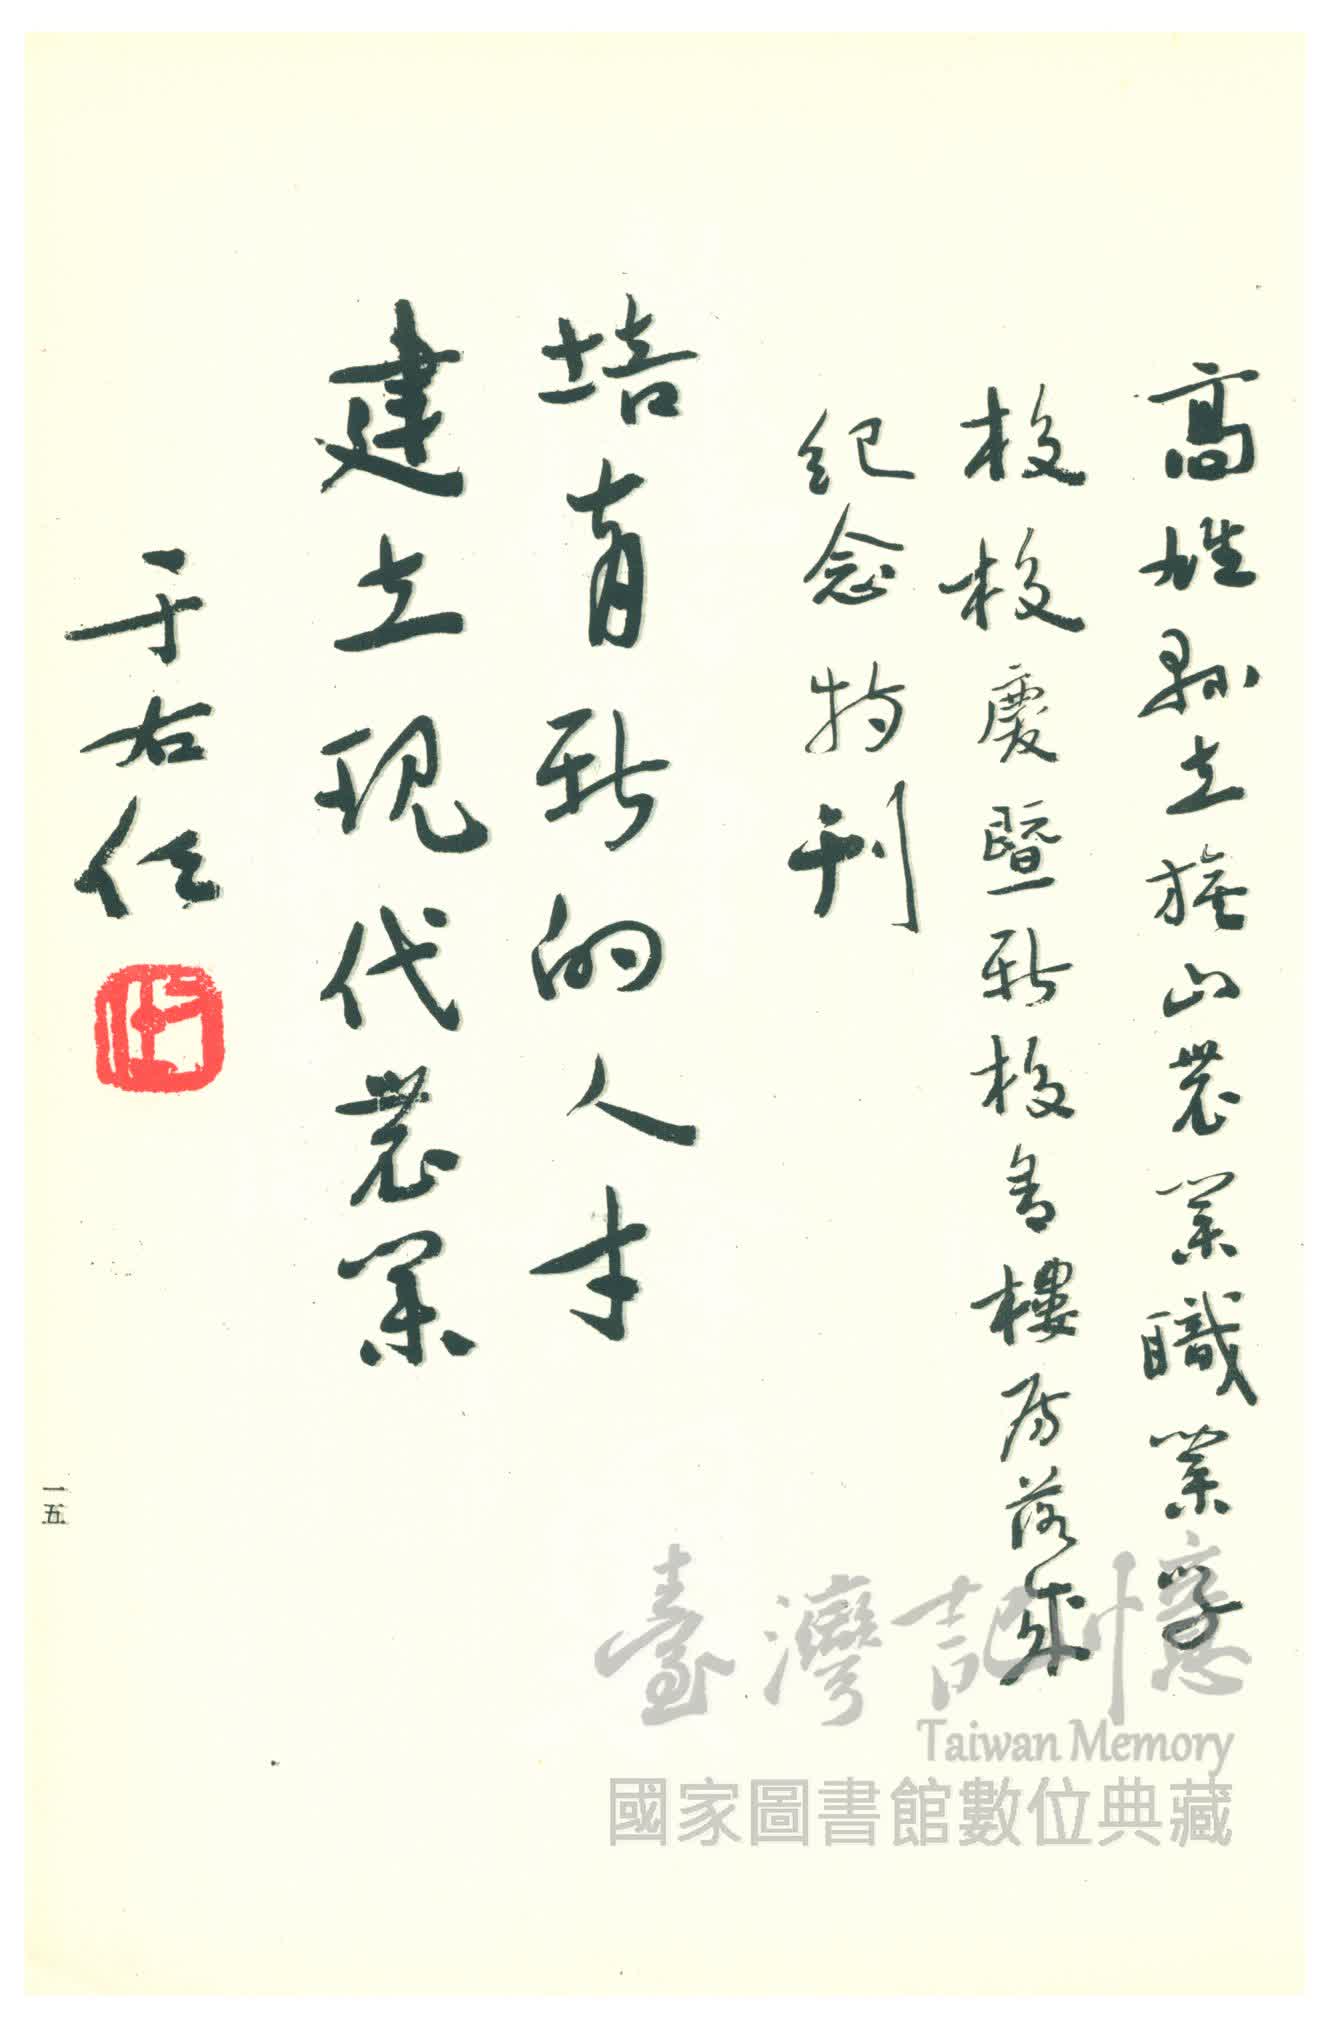 高雄縣立旗山農業職業學
校校慶暨新校舍樓房落成
紀念特刊
培育新的人才
建立現代農業
于右任
一五
臺灣記憶
Taiwan Memory
國家圖書館數位典藏